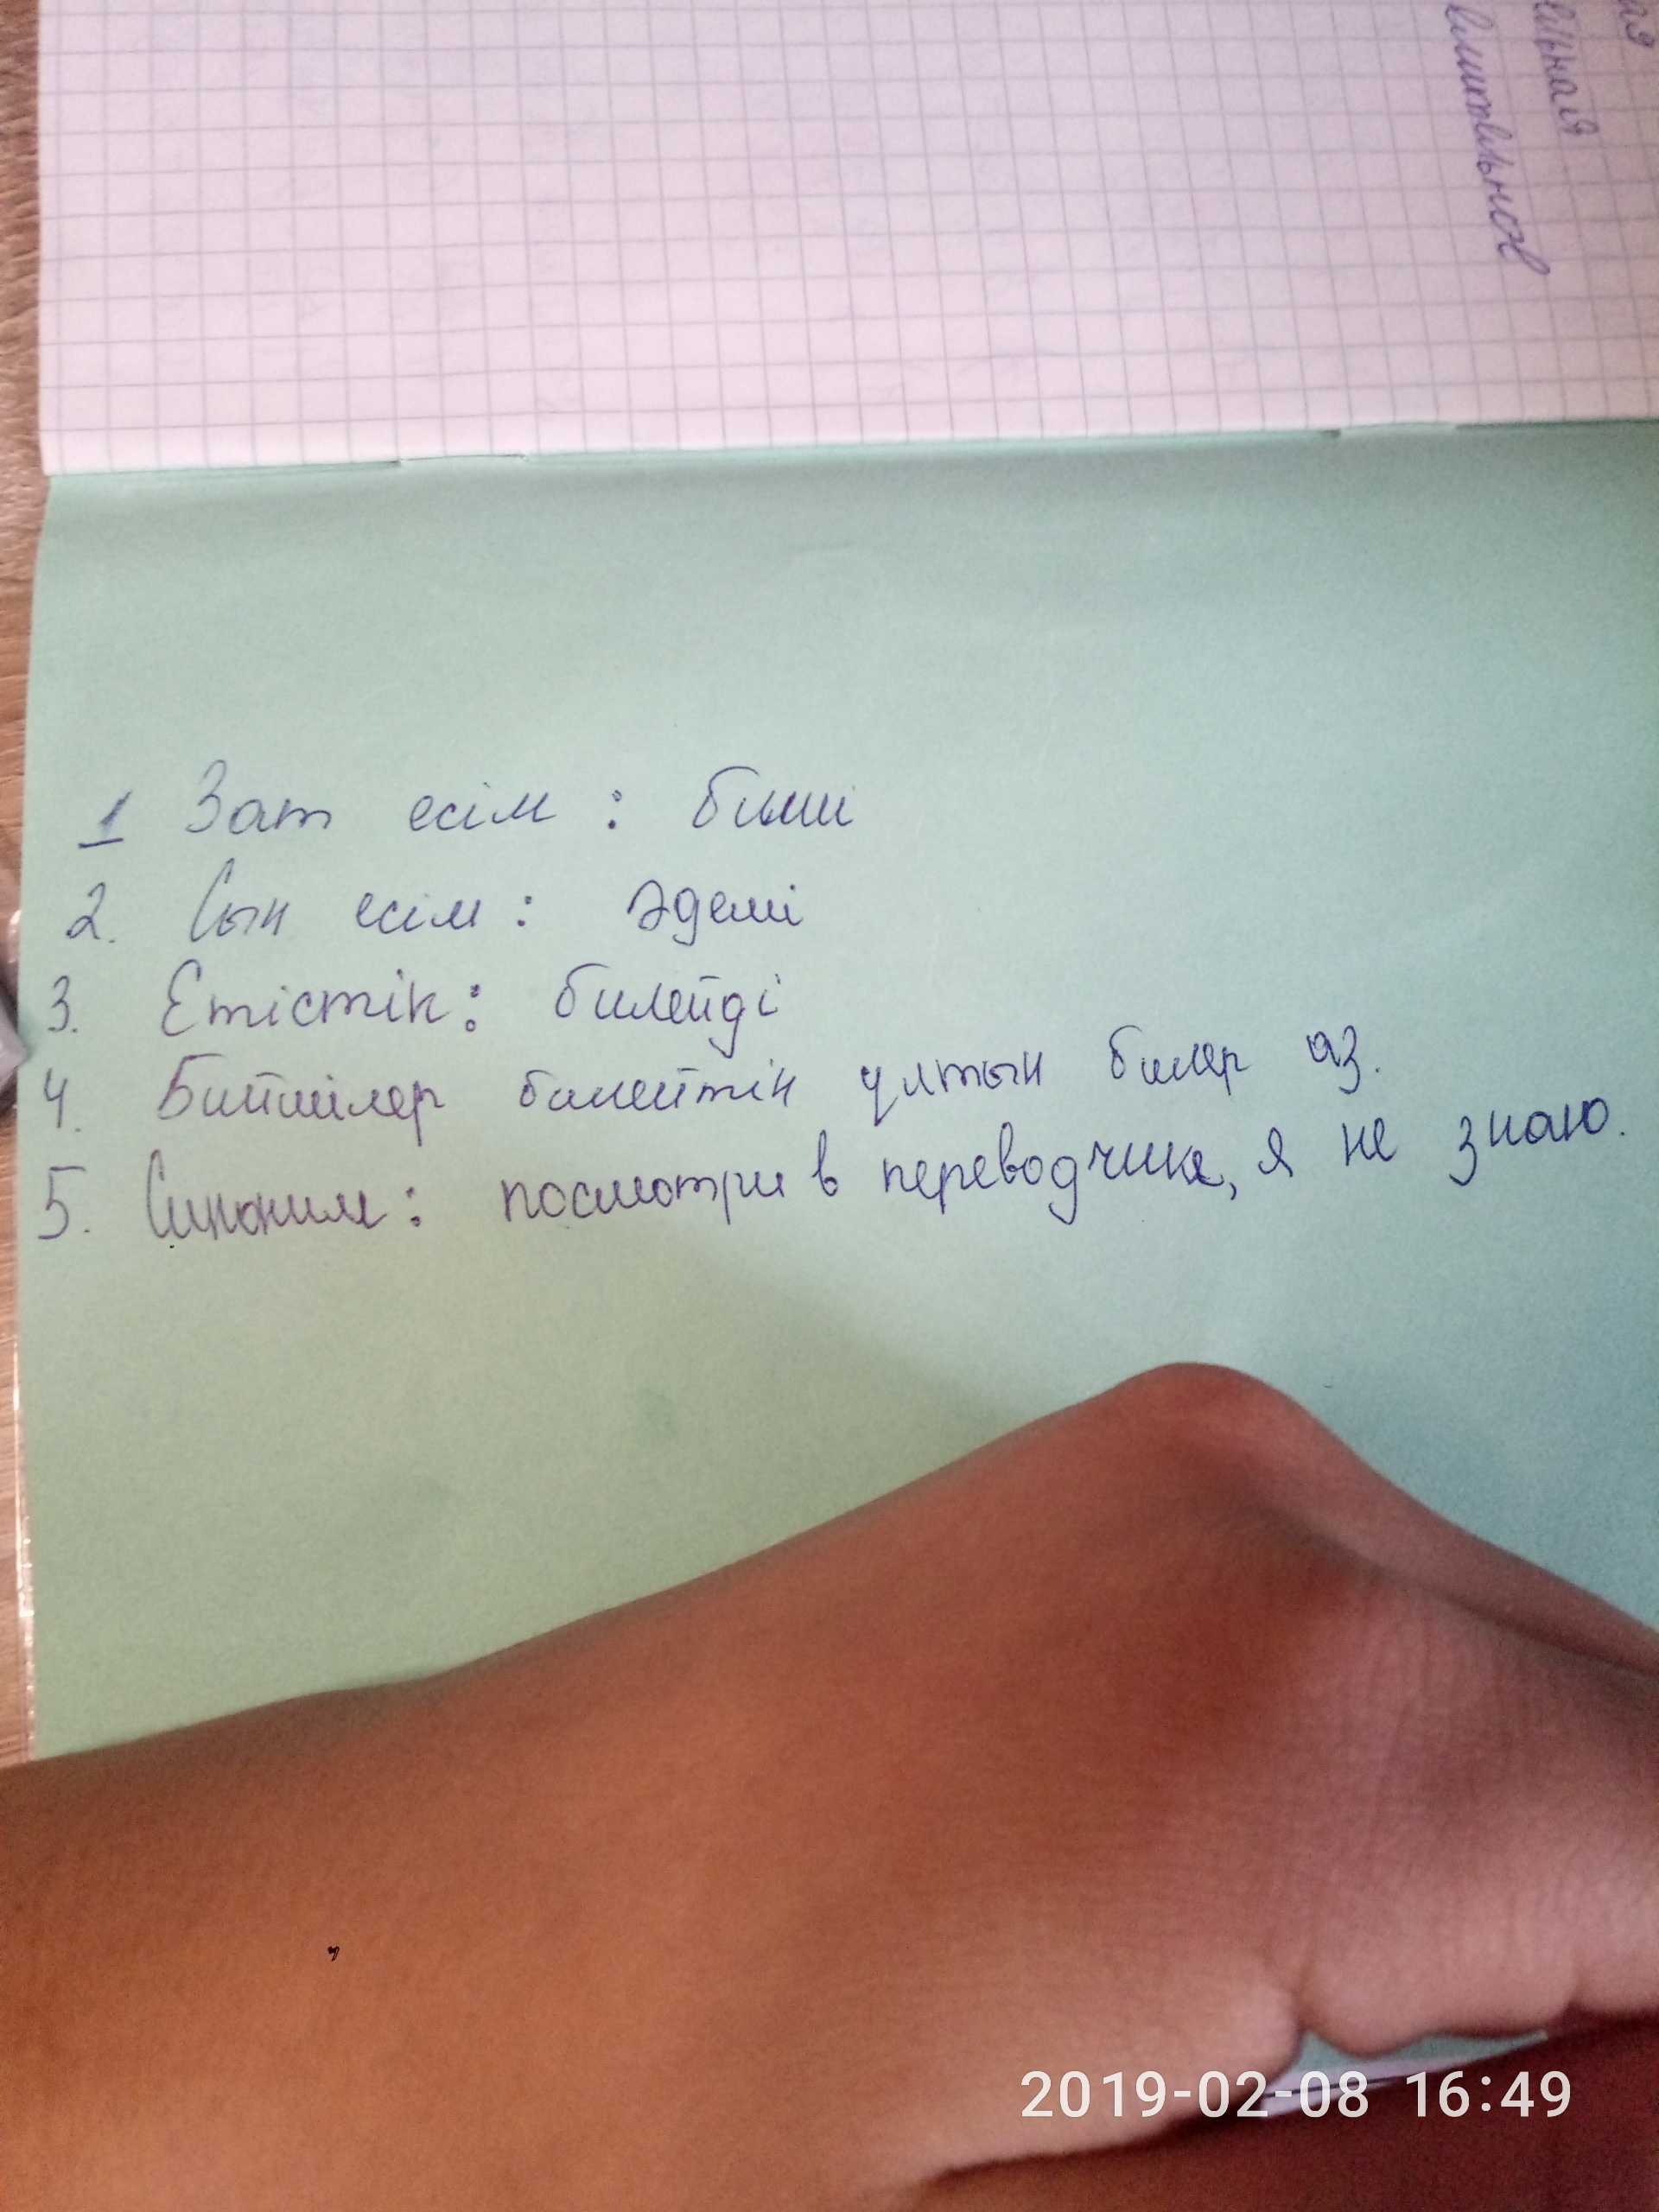 ая
ильная
1 Зат есім : биші
2. Сын есім : әдемі
3. Етістік: билейді
4. Бишілер билейтін ұлтын билер аз.
5. Синоним: посмотри в переводчике, я не знаю.
2019-02-08 16:49